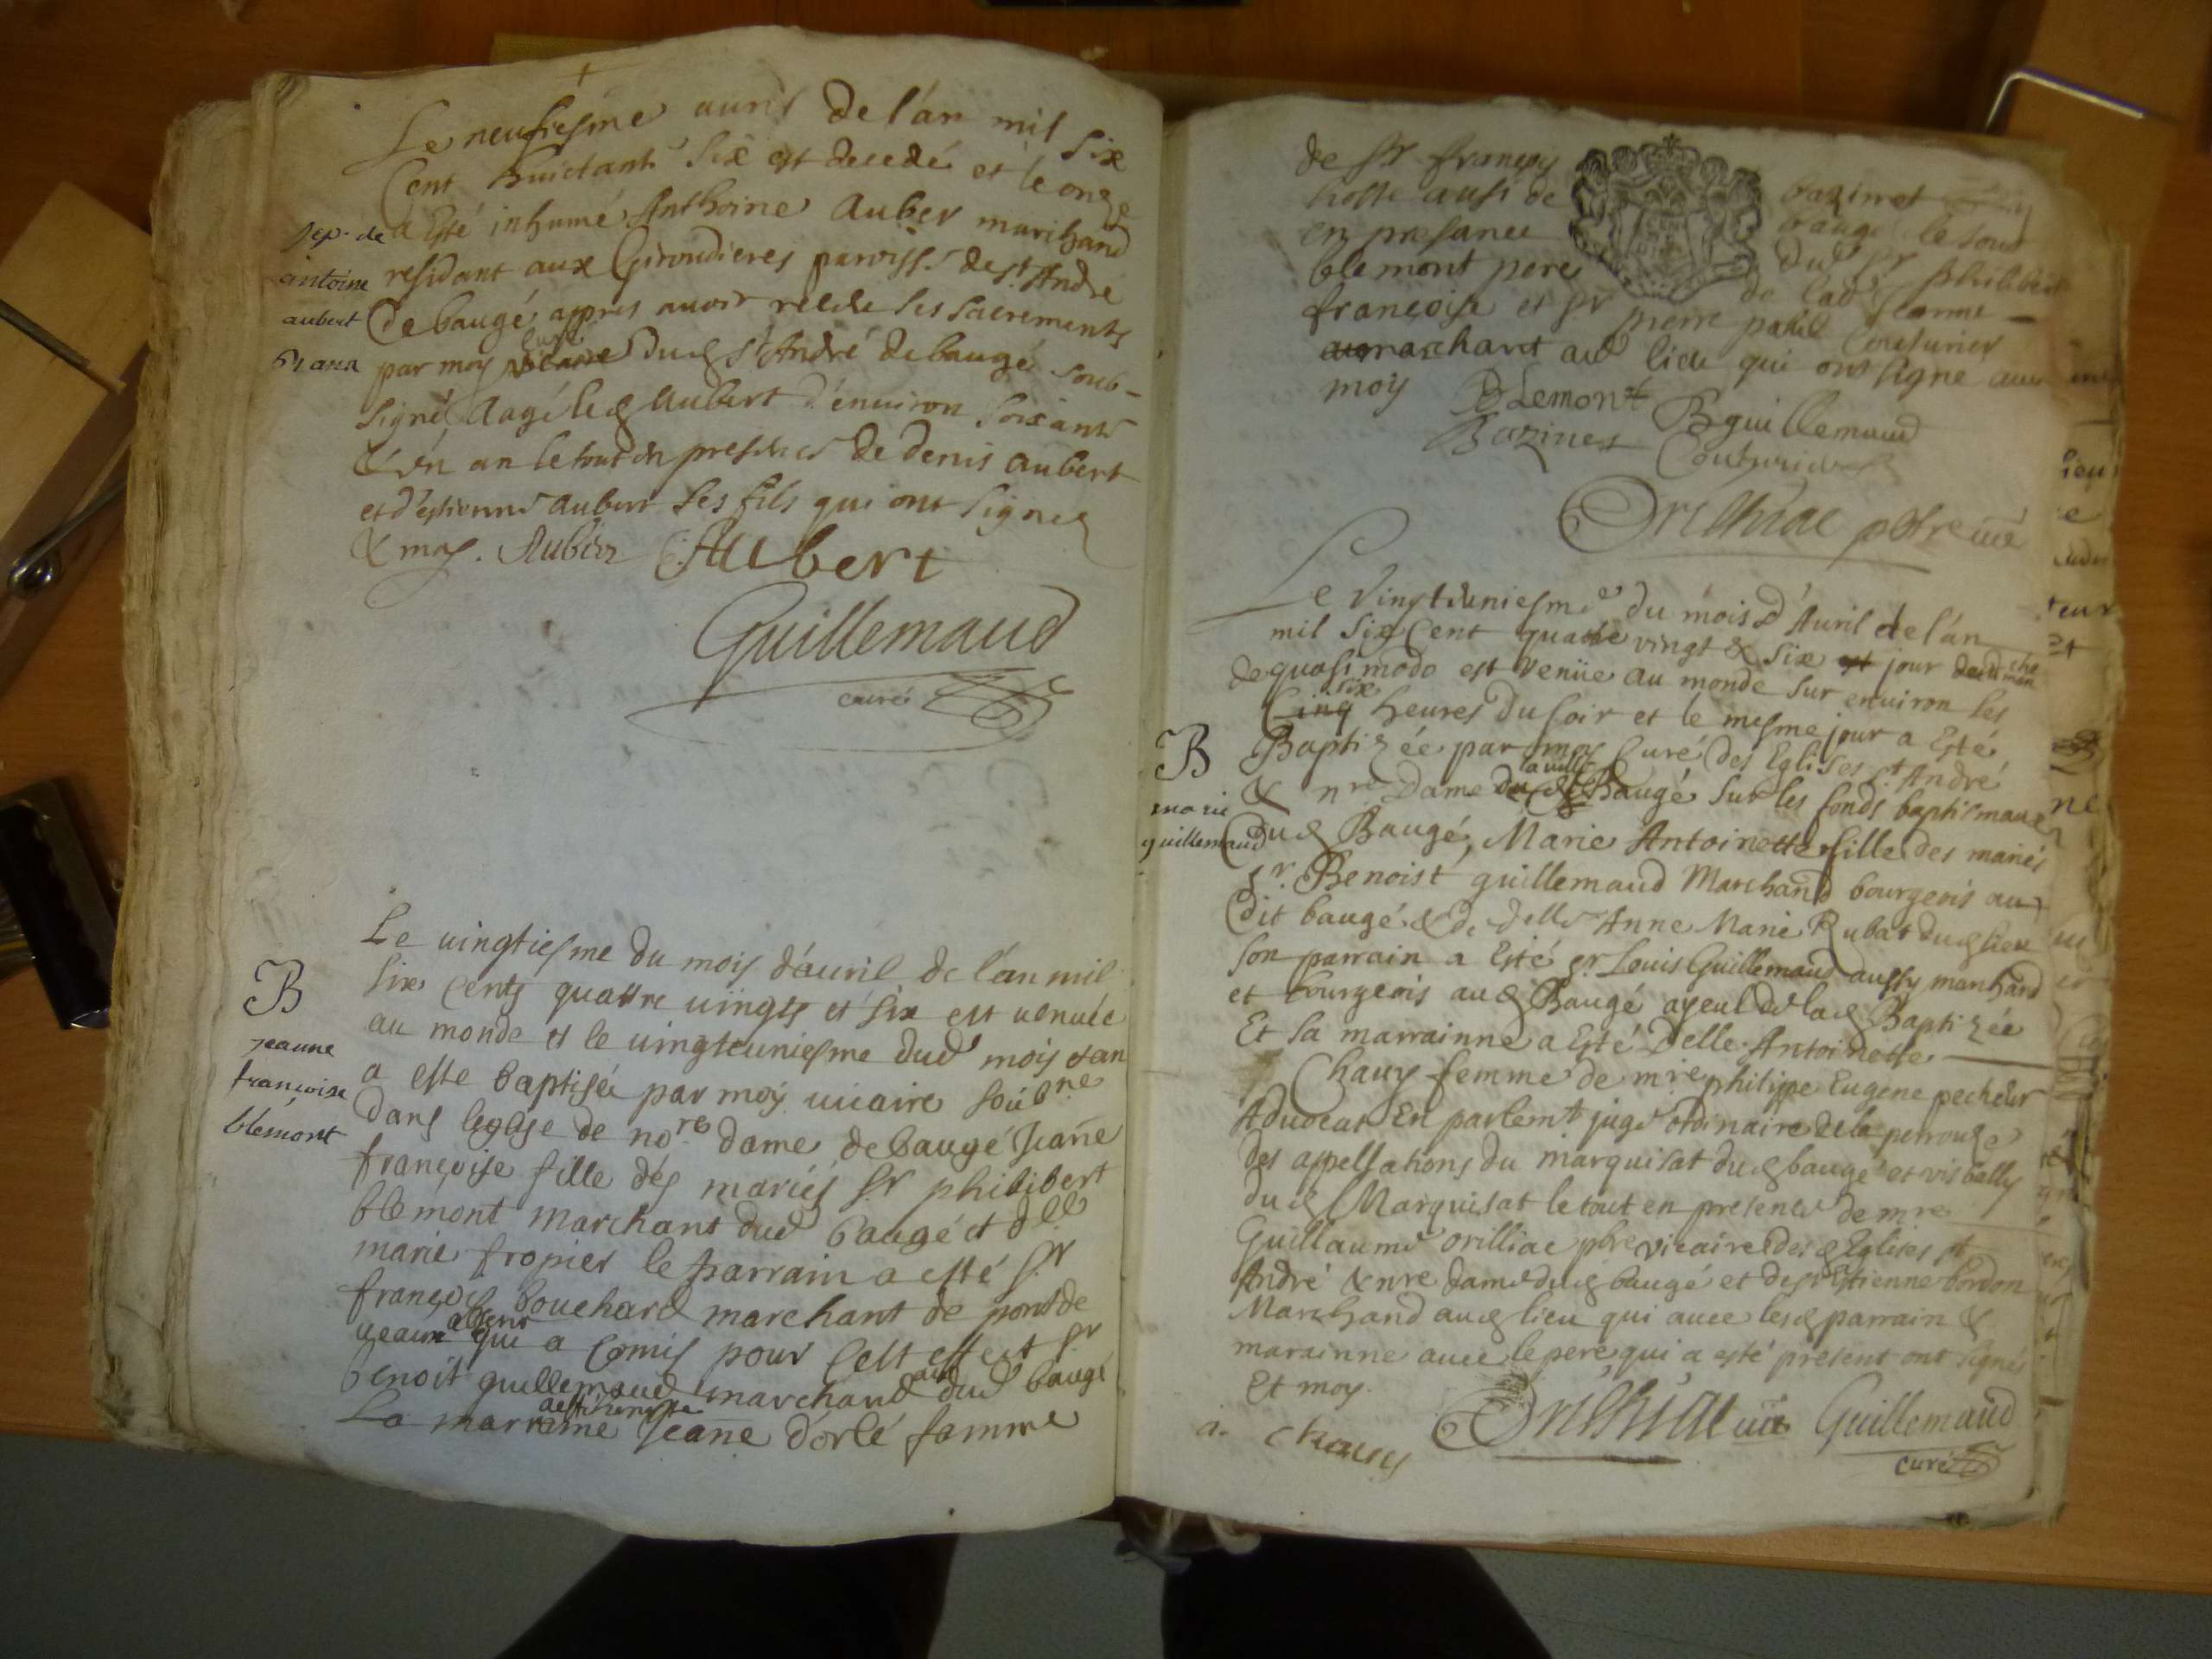 Le neufiesme auril de l'an mil six
Cent huictante six est decedé et le onze
a Esté inhumé Anthoine Auber marchand
residant aux Girondieres parroisse de st André
de baugé appres auoir receu ses sacrements
par moy curé dud St André de baugé soub-
signé Aagé led Aubert d'enuiron soixante
& vn an le tout en presence de denis aubert
et d'estienne aubert ses fils qui ont signé
& moy. Aubert Aubert
Guillemaud
curé
sep. de
antoine
aubert
61 ans
Le uingtiesme du mois d'auril de l'an mil
six cents quattre uingts et six est uenuee
au monde et le uingteuniesme dud mois et an
a esté baptisée par moy uicaire soubne
dans leglise de nore dame de baugé Jeane
françoise fille des mariés sr philibert
blemont marchant dud baugé et dlle
marie fropier le parrain a esté sr
françois bouchard marchant de pont de
ueaux absent qui a comis pour cest effect sr
benoit guillemaud marchand aud dud baugé
La marraine Jeane dorlé femme
B
jeanne
françoise
blemont
de sr françois bazinet
hoste ausi de baugé le tout
en presance dud sr philibert
blemont pere de lad Jeanne
françoise et sr pierre couturier
marchant aud lieu qui ont signé auec
moy Blemont Bguillemaud
Bazinet Couturier
Orilhiac pbtre uic
Le vingtuniesme du mois d'Auril de l'an
mil six Cent quatre vingt & six est jour
de quasimodo est venüe au monde sur enuiron les
Cinq six heures du soir et le mesme jour a Esté
Baptizée par moy Curé des Eglises st André
& nre Dame du la ville de Baugé sur les fonds baptismaux
dud Baugé, Marie Antoinette fille des mariés
sr. Benoist guillemaud Marchand bourgeois au
dit baugé & de delle Anne Marie Rubat dud lieu
son parrain a Esté sr Louis Guillemaud aussy marchand
et bourgeois aud Baugé ayeul de lad Baptizée
Et sa marrainne a Esté Delle Antoinette
Chauy femme de mre philippe Eugene pecheur
Aduocat En parlemt juge ordinaire de la perrouze
des appellations du marquisat dud baugé et vis bally
dud Marquisat le tout en presence de mre
Guillaume orilliac pbre vicaire desd Eglises st
André & nre dame dud baugé et de sr Estienne bordon
Marchand aud lieu qui auec lesd parrain &
marainne auec le pere qui a esté present ont signés
Et moy.
a. chauy Orilhiac uic Guillemaud
curé
B
marie
guillemaud